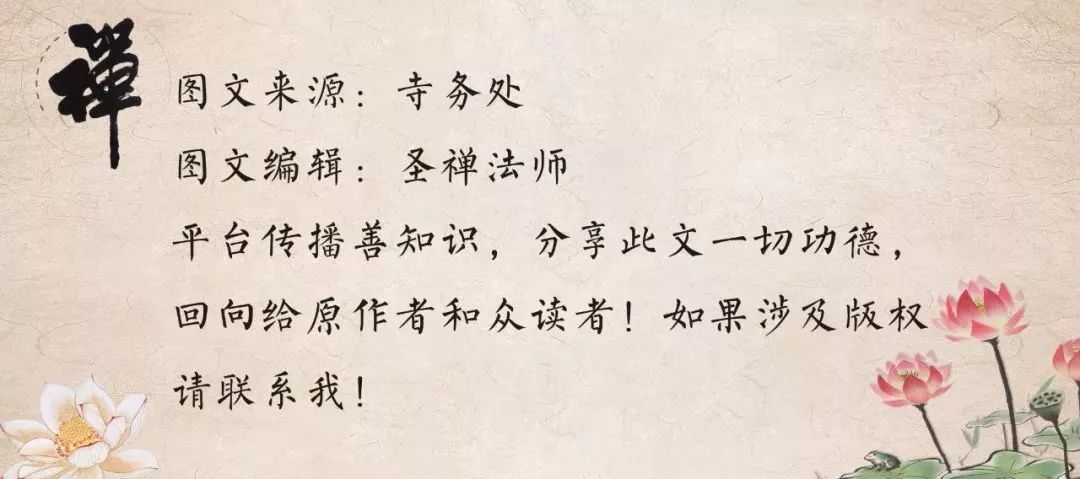 禅
图文来源：寺务处
图文编辑：圣禅法师
平台传播善知识，分享此文一切功德，
回向给原作者和众读者！如果涉及版权
请联系我！